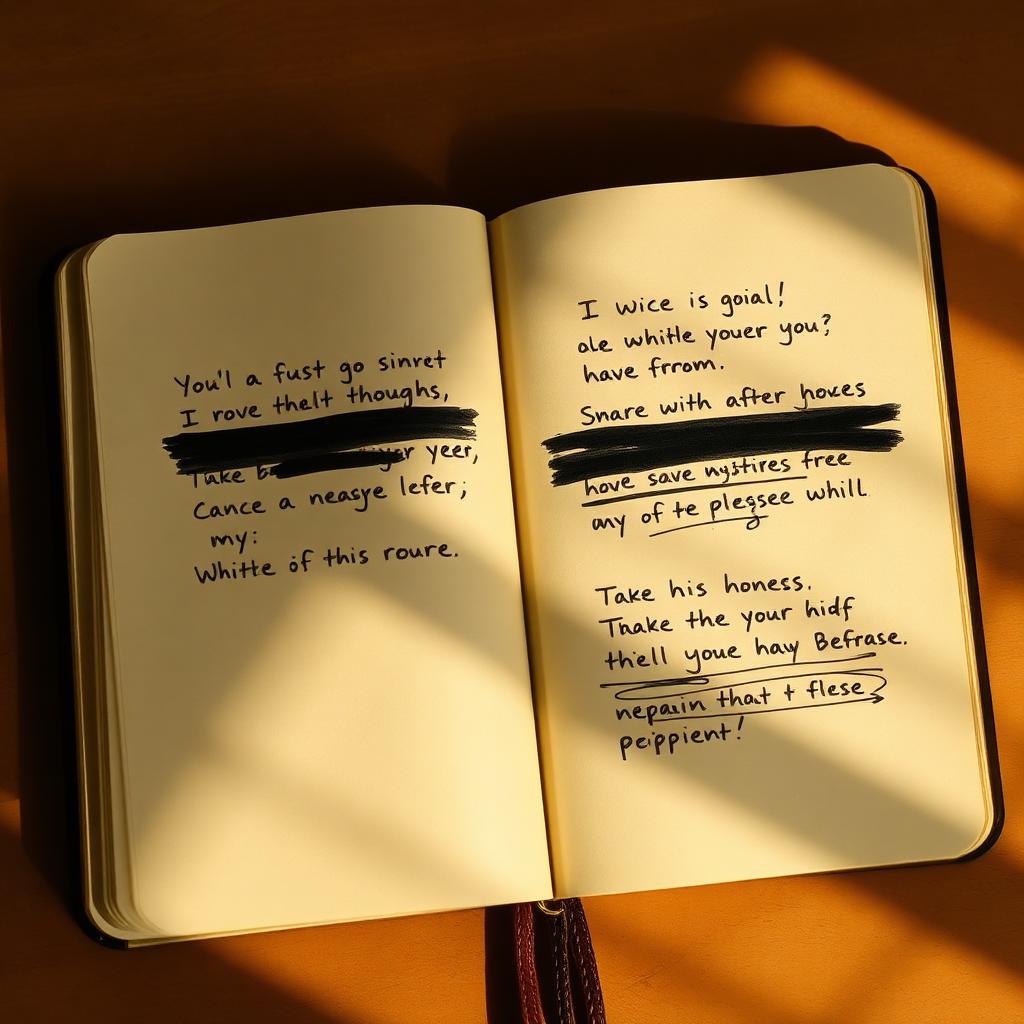 You'l a fust go sinret
I rove thelt thoughs,
Take yeer,
Cance a neasye lefer;
my:
Whitte of this roure.
I wice is goial!
ale whitle youer you?
have frrom.
Snare with after hoxes
hove save nystires free
any of te plegsee whill
Take his honess.
Thake the your hidf
thiell youe haw Befrase.
nepauin that + flese
peippient!